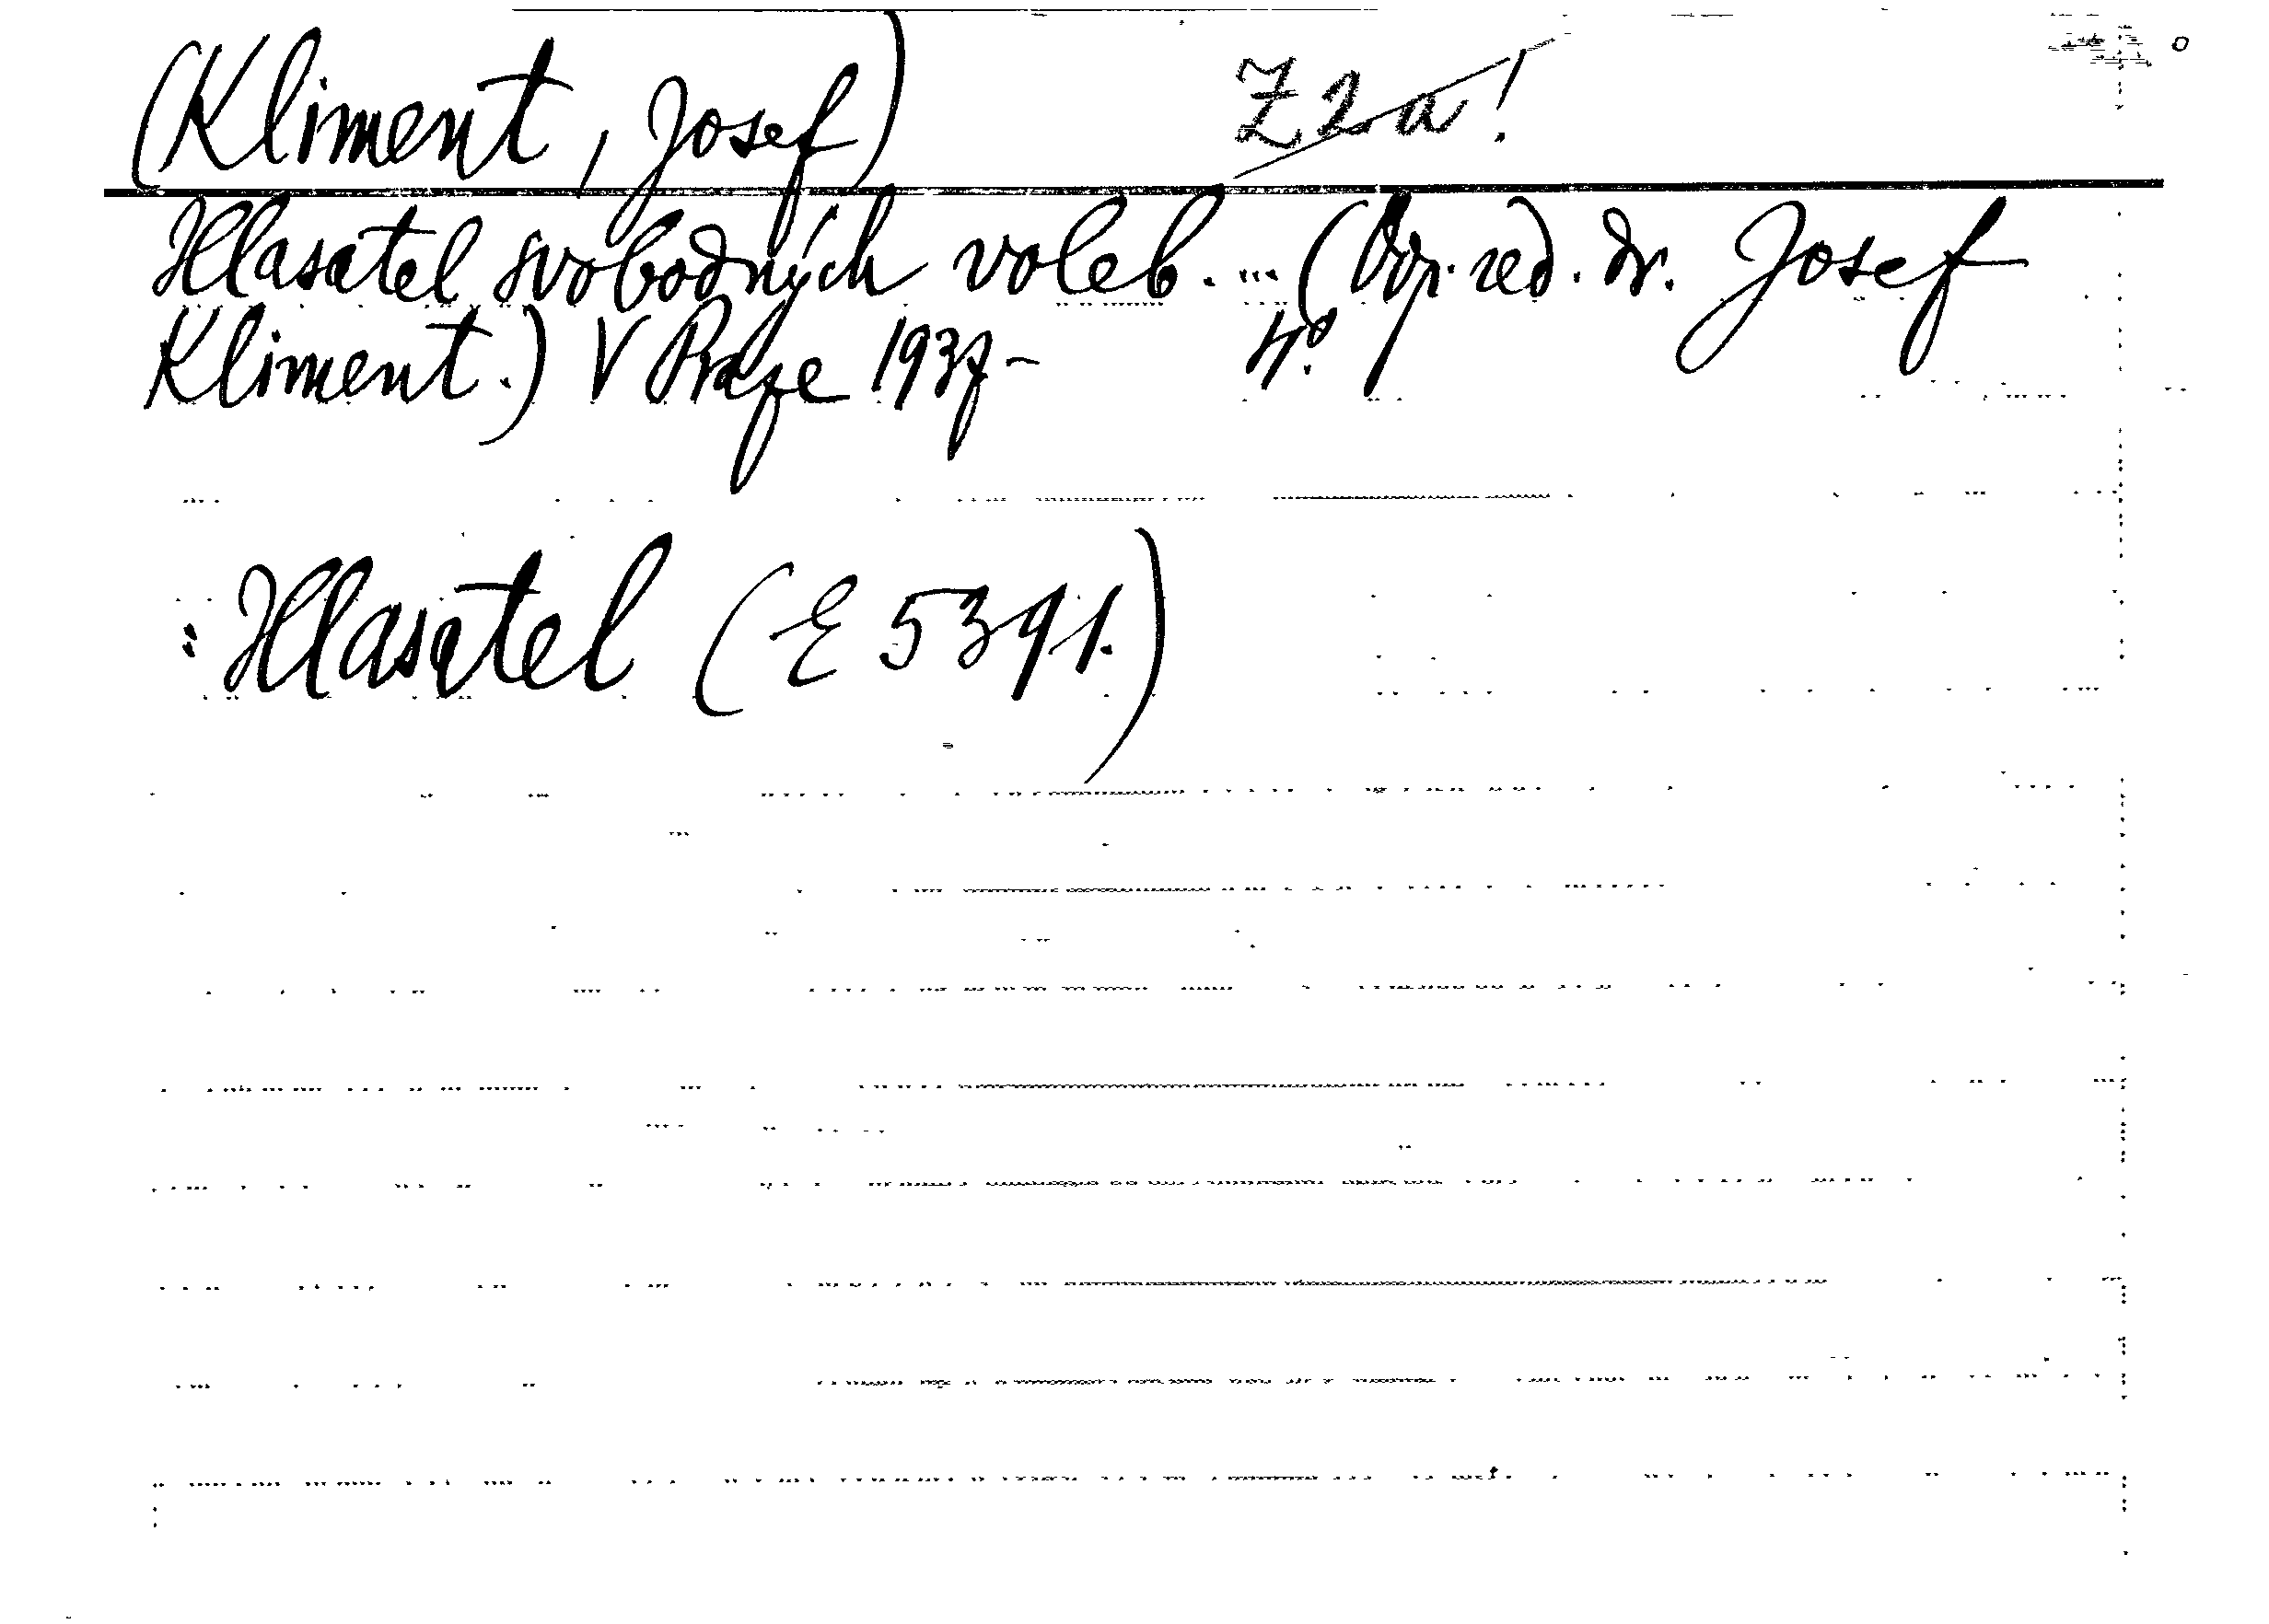 (Kliment, Josef) Z 2a!
Hlasatel svobodných voleb. ... (Odp. red. Dr. Josef
Kliment.) V Praze 1937- 4°.
: Hlasatel (E 5391.)